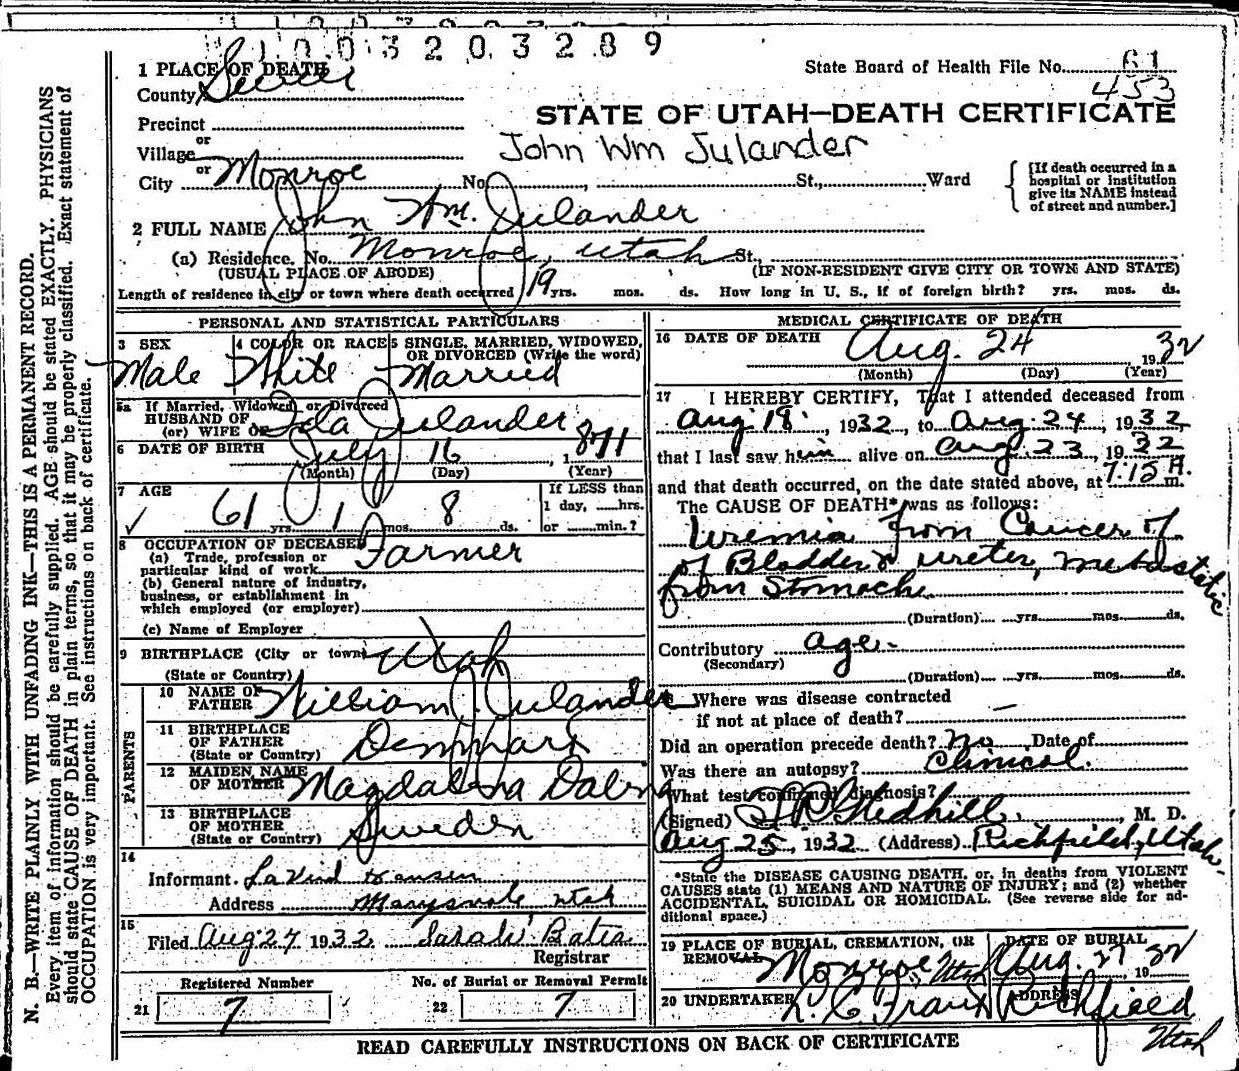 1003203289
1 PLACE OF DEATH
State Board of Health File No. 61
County Sevier
453
STATE OF UTAH—DEATH CERTIFICATE
Precinct
or
Village
John Wm Julander
or
City Monroe No. St., Ward
[If death occurred in a
hospital or institution
give its NAME instead
of street and number.]
2 FULL NAME John Wm. Julander
(a) Residence. No. Monroe, Utah St.,
(USUAL PLACE OF ABODE) (IF NON-RESIDENT GIVE CITY OR TOWN AND STATE)
Length of residence in city or town where death occurred 19 yrs. mos. ds. How long in U. S., if of foreign birth? yrs. mos. ds.
PERSONAL AND STATISTICAL PARTICULARS
3 SEX 4 COLOR OR RACE 5 SINGLE, MARRIED, WIDOWED,
OR DIVORCED (Write the word)
Male White Married
5a If Married, Widowed, or Divorced
HUSBAND OF
(or) WIFE OF Ida Julander
6 DATE OF BIRTH July 16, 1871
(Month) (Day) (Year)
7 AGE If LESS than
1 day, hrs.
61 yrs. 1 mos. 8 ds. or min.?
8 OCCUPATION OF DECEASED
(a) Trade, profession or
particular kind of work Farmer
(b) General nature of industry,
business, or establishment in
which employed (or employer)
(c) Name of Employer
9 BIRTHPLACE (City or town) Utah
(State or Country)
PARENTS
10 NAME OF
FATHER William J. Julander
11 BIRTHPLACE
OF FATHER
(State or Country) Denmark
12 MAIDEN NAME
OF MOTHER Magdalena Daling
13 BIRTHPLACE
OF MOTHER
(State or Country) Sweden
14
Informant.
Address Marysvale, Utah
15
Filed Aug 27 1932 Sarah Bates
Registrar
Registered Number No. of Burial or Removal Permit
21 7 22 7
MEDICAL CERTIFICATE OF DEATH
16 DATE OF DEATH Aug. 24, 1932
(Month) (Day) (Year)
17 I HEREBY CERTIFY, That I attended deceased from
Aug 18, 1932, to Aug. 24, 1932,
that I last saw him alive on Aug. 23, 1932
and that death occurred, on the date stated above, at 7:15 A. m.
The CAUSE OF DEATH* was as follows:
Uremia from Cancer of
of Bladder & ureter, metastatic
from Stomach.
(Duration) yrs. mos. ds.
Contributory age.
(Secondary)
(Duration) yrs. mos. ds.
18 Where was disease contracted
if not at place of death? —
Did an operation precede death? No Date of
Was there an autopsy? Clinical.
What test confirmed diagnosis?
(Signed) Gledhill, M. D.
Aug 25, 1932 (Address) Richfield, Utah.
*State the DISEASE CAUSING DEATH, or, in deaths from VIOLENT
CAUSES state (1) MEANS AND NATURE OF INJURY; and (2) whether
ACCIDENTAL, SUICIDAL OR HOMICIDAL. (See reverse side for ad-
ditional space.)
19 PLACE OF BURIAL, CREMATION, OR
REMOVAL Monroe, Utah
DATE OF BURIAL
Aug. 27, 1932
20 UNDERTAKER
ADDRESS
Richfield
Utah
READ CAREFULLY INSTRUCTIONS ON BACK OF CERTIFICATE
N. B.—WRITE PLAINLY WITH UNFADING INK—THIS IS A PERMANENT RECORD.
Every item of information should be carefully supplied. AGE should be stated EXACTLY. PHYSICIANS
should state CAUSE OF DEATH in plain terms, so that it may be properly classified. Exact statement of
OCCUPATION is very important. See instructions on back of certificate.